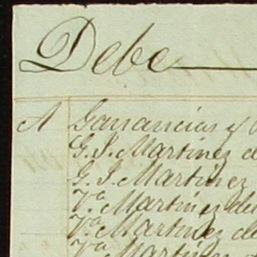 Debe
A Ganancias y
G. J. Martinez de
G. J. Martinez
Vª. Martinez de
Vª. Martinez de
Vª Martinez